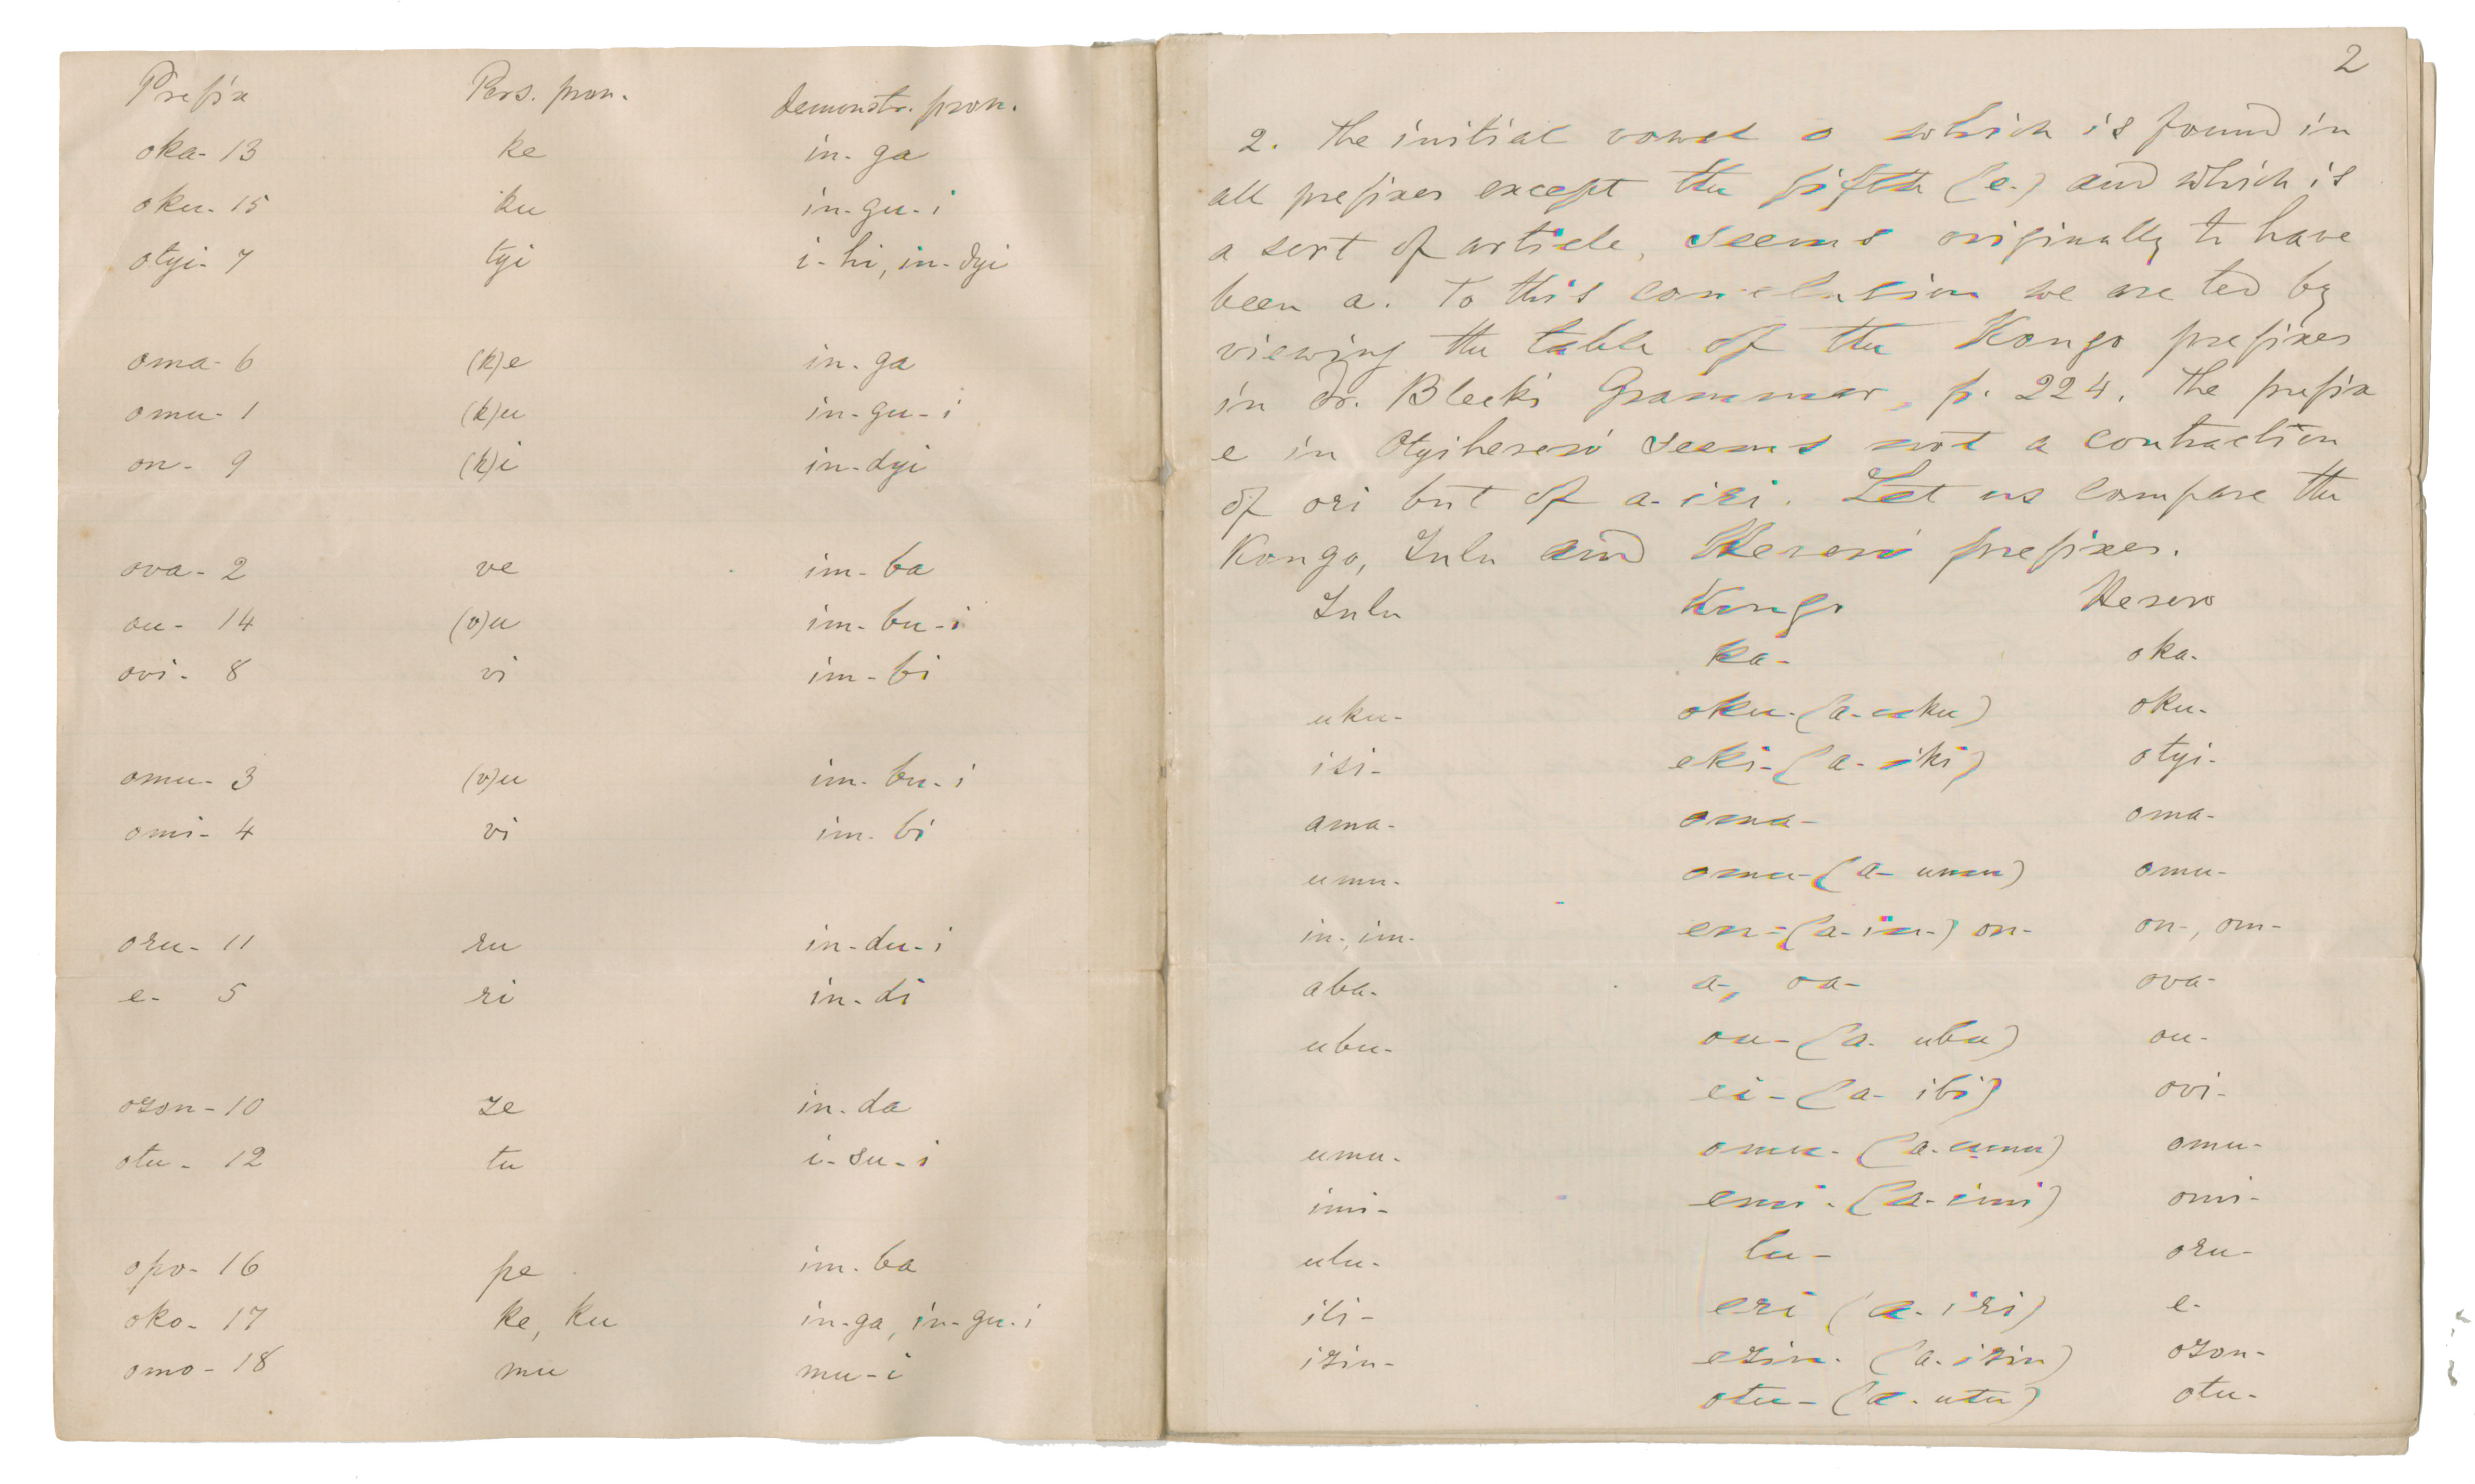 Prefix Pers. pron. demonstr. pron.
oka- 13 ke in-ga
oku- 15 ku in-gu-i
otyi- 7 tyi i-hi, in-dyi
oma- 6 (k)e in-ga
omu- 1 (k)u in-gu-i
on- 9 (k)i in-dyi
ova- 2 ve im-ba
ou- 14 (v)u im-bu-i
ovi- 8 vi im-bi
omu- 3 (v)u im-bu-i
omi- 4 vi im-bi
oru- 11 ru in-du-i
e- 5 ri in-di
ozon- 10 ze in-da
otu- 12 tu i-su-i
opo- 16 pe im-ba
oko- 17 ke, ku in-ga, in-gu-i
omo- 18 mu mu-i
2
2. The initial vowel o which is found in
all prefixes except the fifth (e-) and which is
a sort of article, seems originally to have
been a. To this conclusion we are led by
viewing the table of the Kongo prefixes
in Dr. Bleek's Grammar, p. 224. The prefix
e in Otyiherero seems not a contraction
of ori but of a-iri. Let us compare the
Kongo, Zulu and Herero prefixes.
Zulu Kongo Herero
ka- oka-
uku- oku-(a-uku) oku-
isi- eki-(a-iki) otyi-
ama- oma- oma-
umu- omu-(a-umu) omu-
in-, im- en-(a-in-) on- on-, om-
aba- a-, oa- ova-
ubu- ou-(a-ubu) ou-
ei-(a-ibi) ovi-
umu- omu-(a-umu) omu-
imi- emi-(a-imi) omi-
ulu- lu- oru-
ili- eri (a-iri) e-
izin- ezin-(a-izin) ozon-
otu-(a-utu) otu-